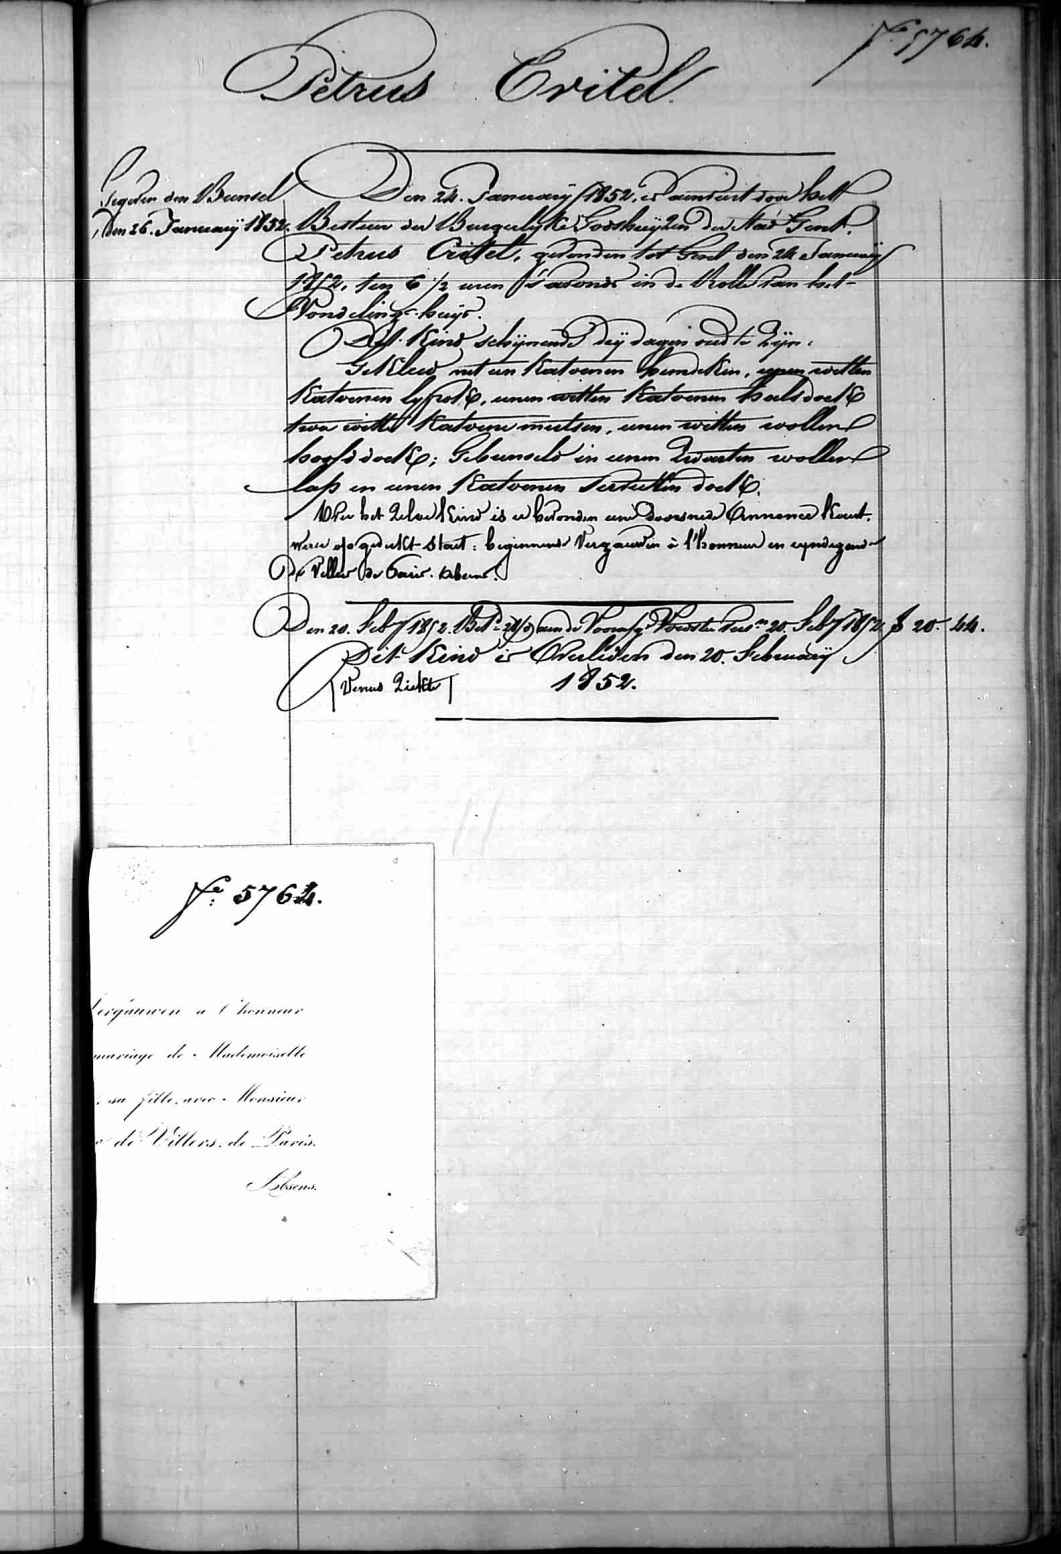 N.º 5764.
Petrus Critel.
Gegeven den Bunsel
den 26. January 1852.
Den 24. January 1852, is aanveird door het
Bestuer der Burgerlyke Godshuyzen der Stad Gent.
Petrus Critel, gevonden tot Gent den 24 January
1852, ten 6 1/2 uren 's avonds in de Rolle van het
Vondeling-huys.
Het Kind schynende dry dagen oud te zyn.
Gekleed met een Katoenen hemdeken, eenen witten
Katoenen lyfrok, eenen witten Katoenen halsdoek
twee witte Katoene mutsen, eenen witten wollen
hoofddoek; Gebunseld in eenen zwarten wollen
lap en eenen Katoenen servietten doek.
Op het zelve Kind is er bevonden eene doorsnede Annonce Kaart.
waer op gedrukt staet: beginnende Vergauwen à l'honneur en eyndigende
De Villers de Paris. Absens.
Den 20. Feby 1852. Bet. aen de Voorsz. Voedster tot 20. Feby 1852 f 20. 44.
Dit Kind is Overleden den 20. February
(Venus Ziekte) 1852.
N.º 5764.
Vergauwen a l'honneur
mariage de Mademoiselle
sa fille, avec Monsieur
de Villers, de Paris.
Absens.